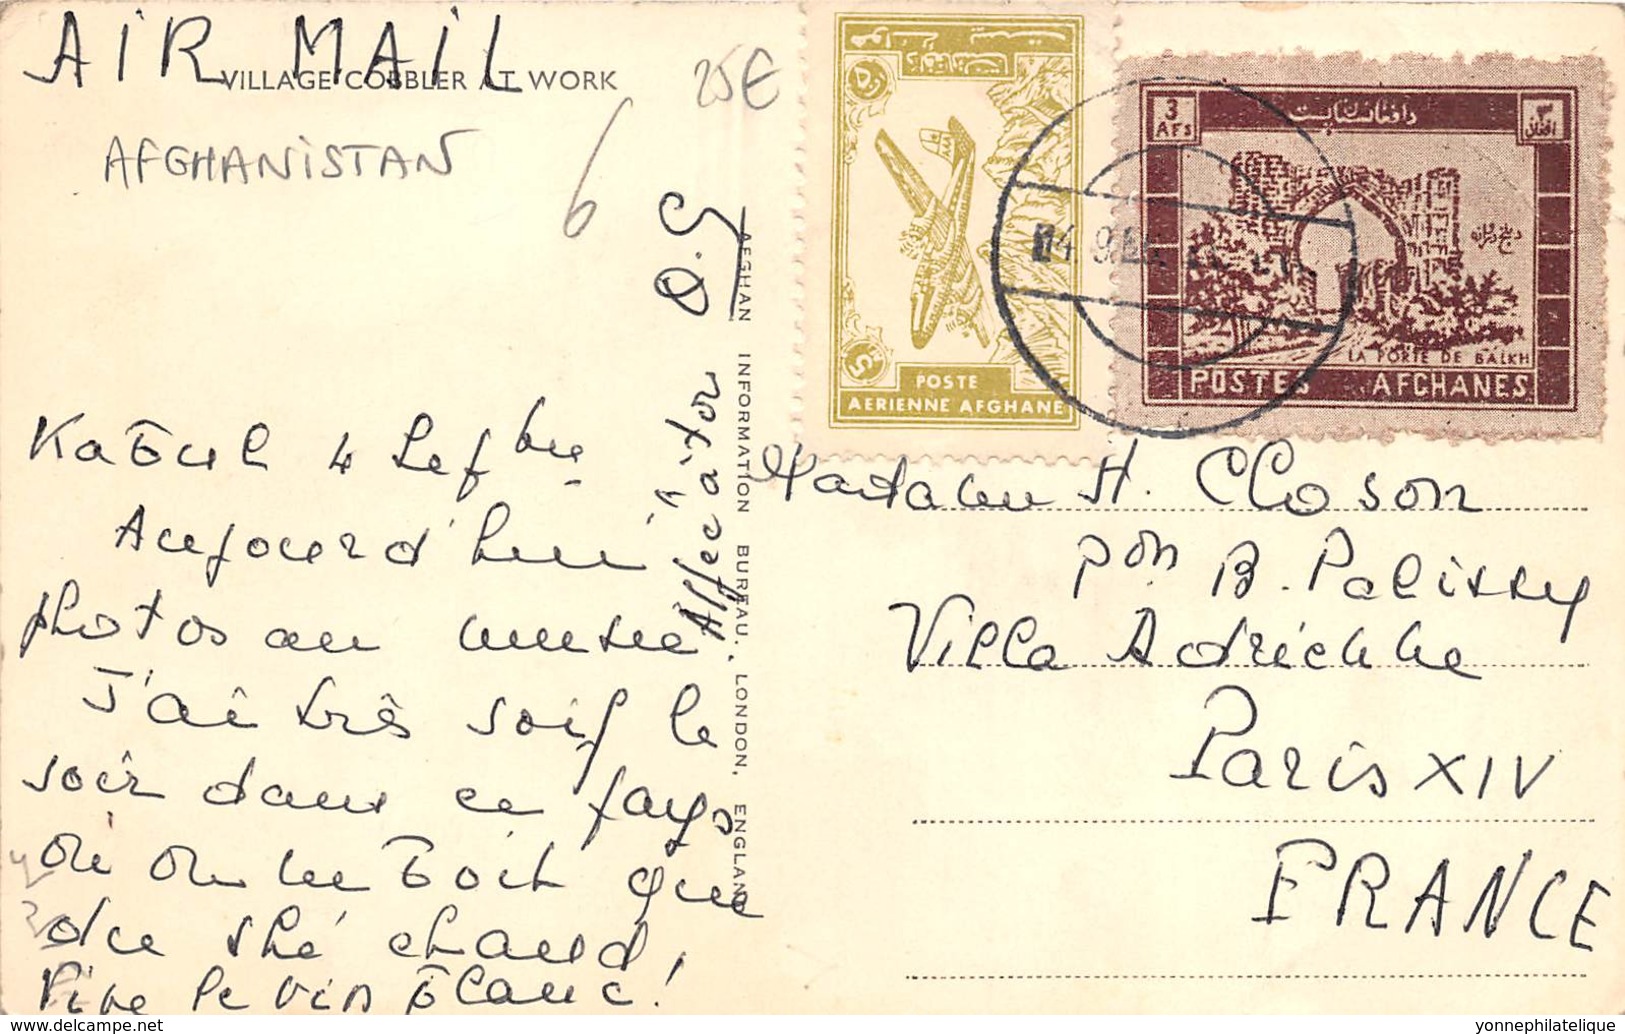 AIR MAIL
VILLAGE COBBLER AT WORK
25€
AFGHANISTAN
6
Kaboul 4 Septbre
Aujourd'hui
photos au musée
J'ai très soif le
soir dans ce pays
où on ne boit que
du thé chaud,
Vive le vin blanc!
AFGHAN INFORMATION BUREAU, LONDON, ENGLAND
POSTE
AERIENNE AFGHANE
5
3
AFS
۳
دافغانستان پست
LA PORTE DE BALKH
POSTES AFGHANES
Madame H. Closon
pon B. Palissy
Villa Adrienne
Paris XIV
FRANCE
yonnephilatelie@gmail.com